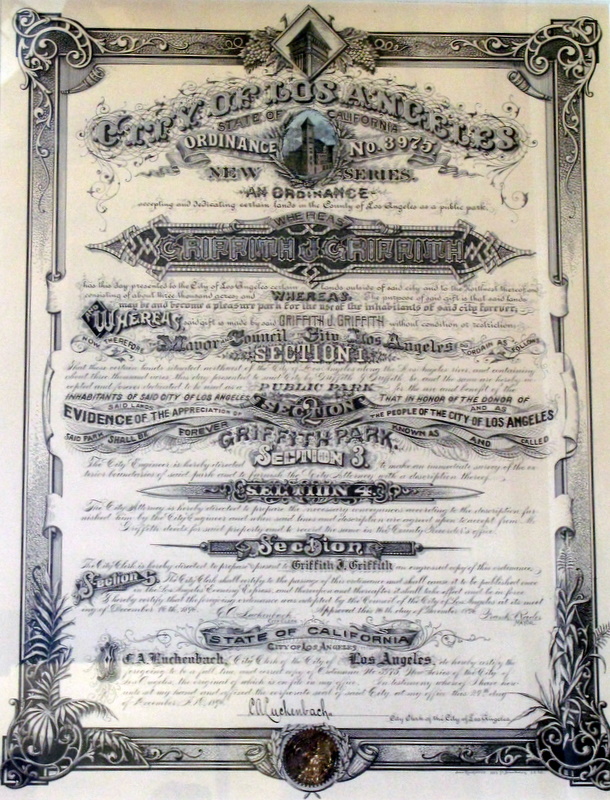 CITY OF LOS ANGELES
STATE OF CALIFORNIA
ORDINANCE No. 3975
NEW SERIES.
AN ORDINANCE
accepting and dedicating certain lands in the County of Los Angeles as a public park.
WHEREAS
GRIFFITH J. GRIFFITH
has this day presented to the City of Los Angeles certain lands outside of said city and to the Northwest thereof and
consisting of about three thousand acres; and WHEREAS, The purpose of said gift is that said lands
may be and become a pleasure park for the use of the inhabitants of said city forever;
AND WHEREAS said gift is made by said GRIFFITH J. GRIFFITH without condition or restriction;
NOW THEREFORE Mayor and Council City Los Angeles do ORDAIN AS FOLLOWS
SECTION 1.
That those certain lands situated northwest of the City of Los Angeles along the Los Angeles river, and containing
about three thousand acres, this day presented to said City by Griffith J. Griffith be and the same are hereby ac
cepted and forever dedicated to and as a PUBLIC PARK for the use and benefit of the
INHABITANTS OF SAID CITY OF LOS ANGELES. SECTION 2 THAT IN HONOR OF THE DONOR OF
SAID LANDS AND AS
EVIDENCE OF THE APPRECIATION OF THE PEOPLE OF THE CITY OF LOS ANGELES
SAID PARK SHALL BE FOREVER KNOWN AS AND CALLED
GRIFFITH PARK.
SECTION 3.
The City Engineer is hereby directed to make an immediate survey of the ex
terior boundaries of said park and to furnish the City Attorney with a description thereof.
SECTION 4.
The City Attorney is hereby directed to prepare the necessary conveyances according to the description fur
nished him by the City Engineer and when said lines and description are agreed upon to accept from Mr.
Griffith deeds for said property and to record the same in the County Recorder's office.
Section
The City Clerk is hereby directed to prepare & present to Griffith J. Griffith an engrossed copy of this ordinance.
Section 5 The City Clerk shall certify to the passage of this ordinance and shall cause it to be published once
in the Los Angeles Evening Express, and thereupon and thereafter it shall take effect and be in force.
I hereby certify that the foregoing ordinance was adopted by the Council of the City of Los Angeles at its meet
ing of December 16th, 1896. C.A. Luchenbach Approved this 16th day of December 1896 Frank Rader
STATE OF CALIFORNIA
CITY OF LOS ANGELES
I C.A. Luchenbach, City Clerk of the City of Los Angeles, do hereby certify the
foregoing to be a full, true and correct copy of Ordinance No. 3975, New Series of the City of
Los Angeles, the original of which is on file in my office. In testimony whereof I have here
unto set my hand and affixed the corporate seal of said City, at my office this day
of December A.D. 1896.
C.A. Luchenbach.
City Clerk of the City of Los Angeles.